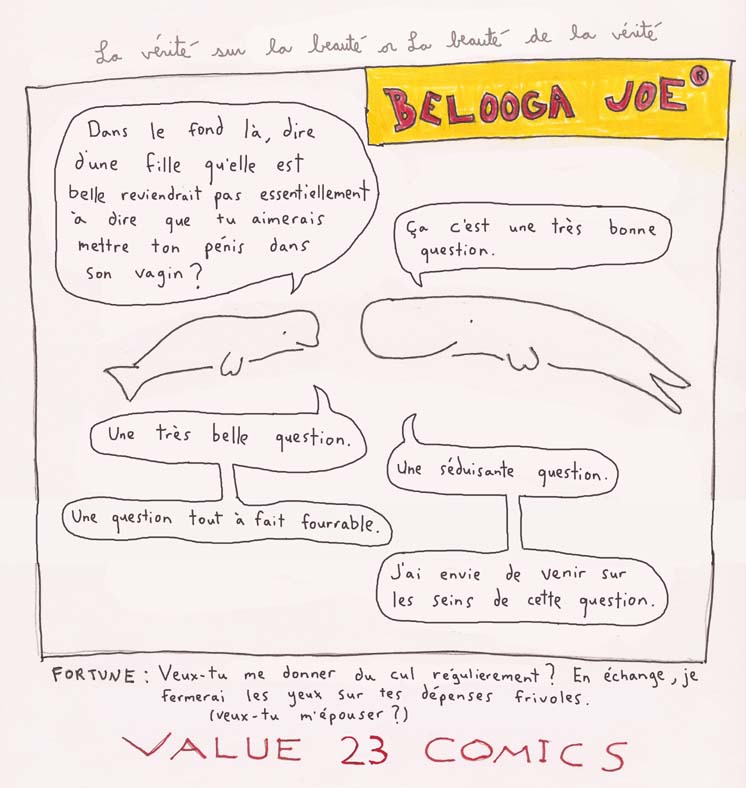 La vérité sur la beauté or La beauté de la vérité
BELOOGA JOE ®
Dans le fond là, dire
d'une fille qu'elle est
belle reviendrait pas essentiellement
à dire que tu aimerais
mettre ton pénis dans
son vagin?
Ça c'est une très bonne
question.
Une très belle question.
Une séduisante question.
Une question tout à fait fourrable.
J'ai envie de venir sur
les seins de cette question.
FORTUNE : Veux-tu me donner du cul régulierement? En échange, je
fermerai les yeux sur tes dépenses frivoles.
(veux-tu m'épouser?)
VALUE 23 COMICS